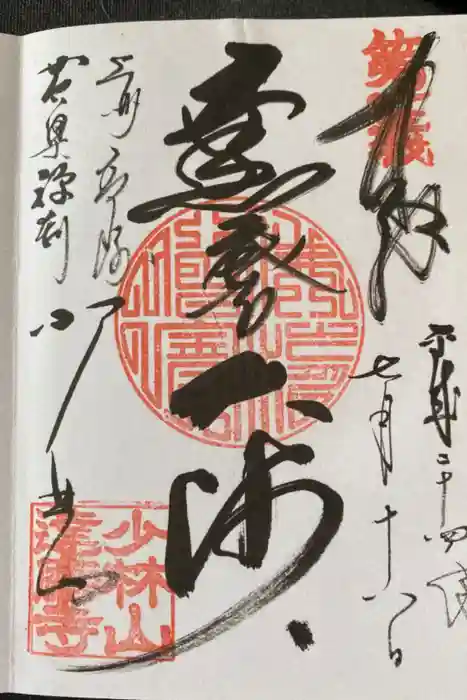 第一義
奉拝
平成二十四歳
七月十八日
達磨大師
上州高崎
黄檗禅刹
少林山
少林山
達磨寺